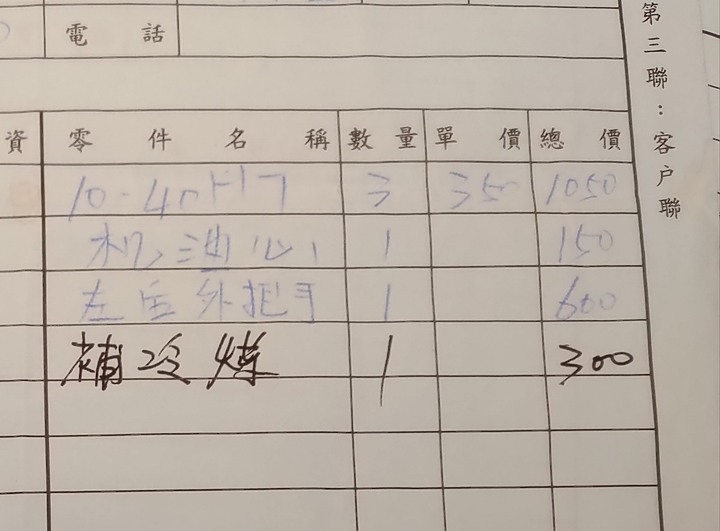 電話
資 零件名稱 數量 單價 總價
10-40 3 35 1050
机油心 1 150
左 外把手 1 600
補冷煤 1 300
第三聯：客户聯